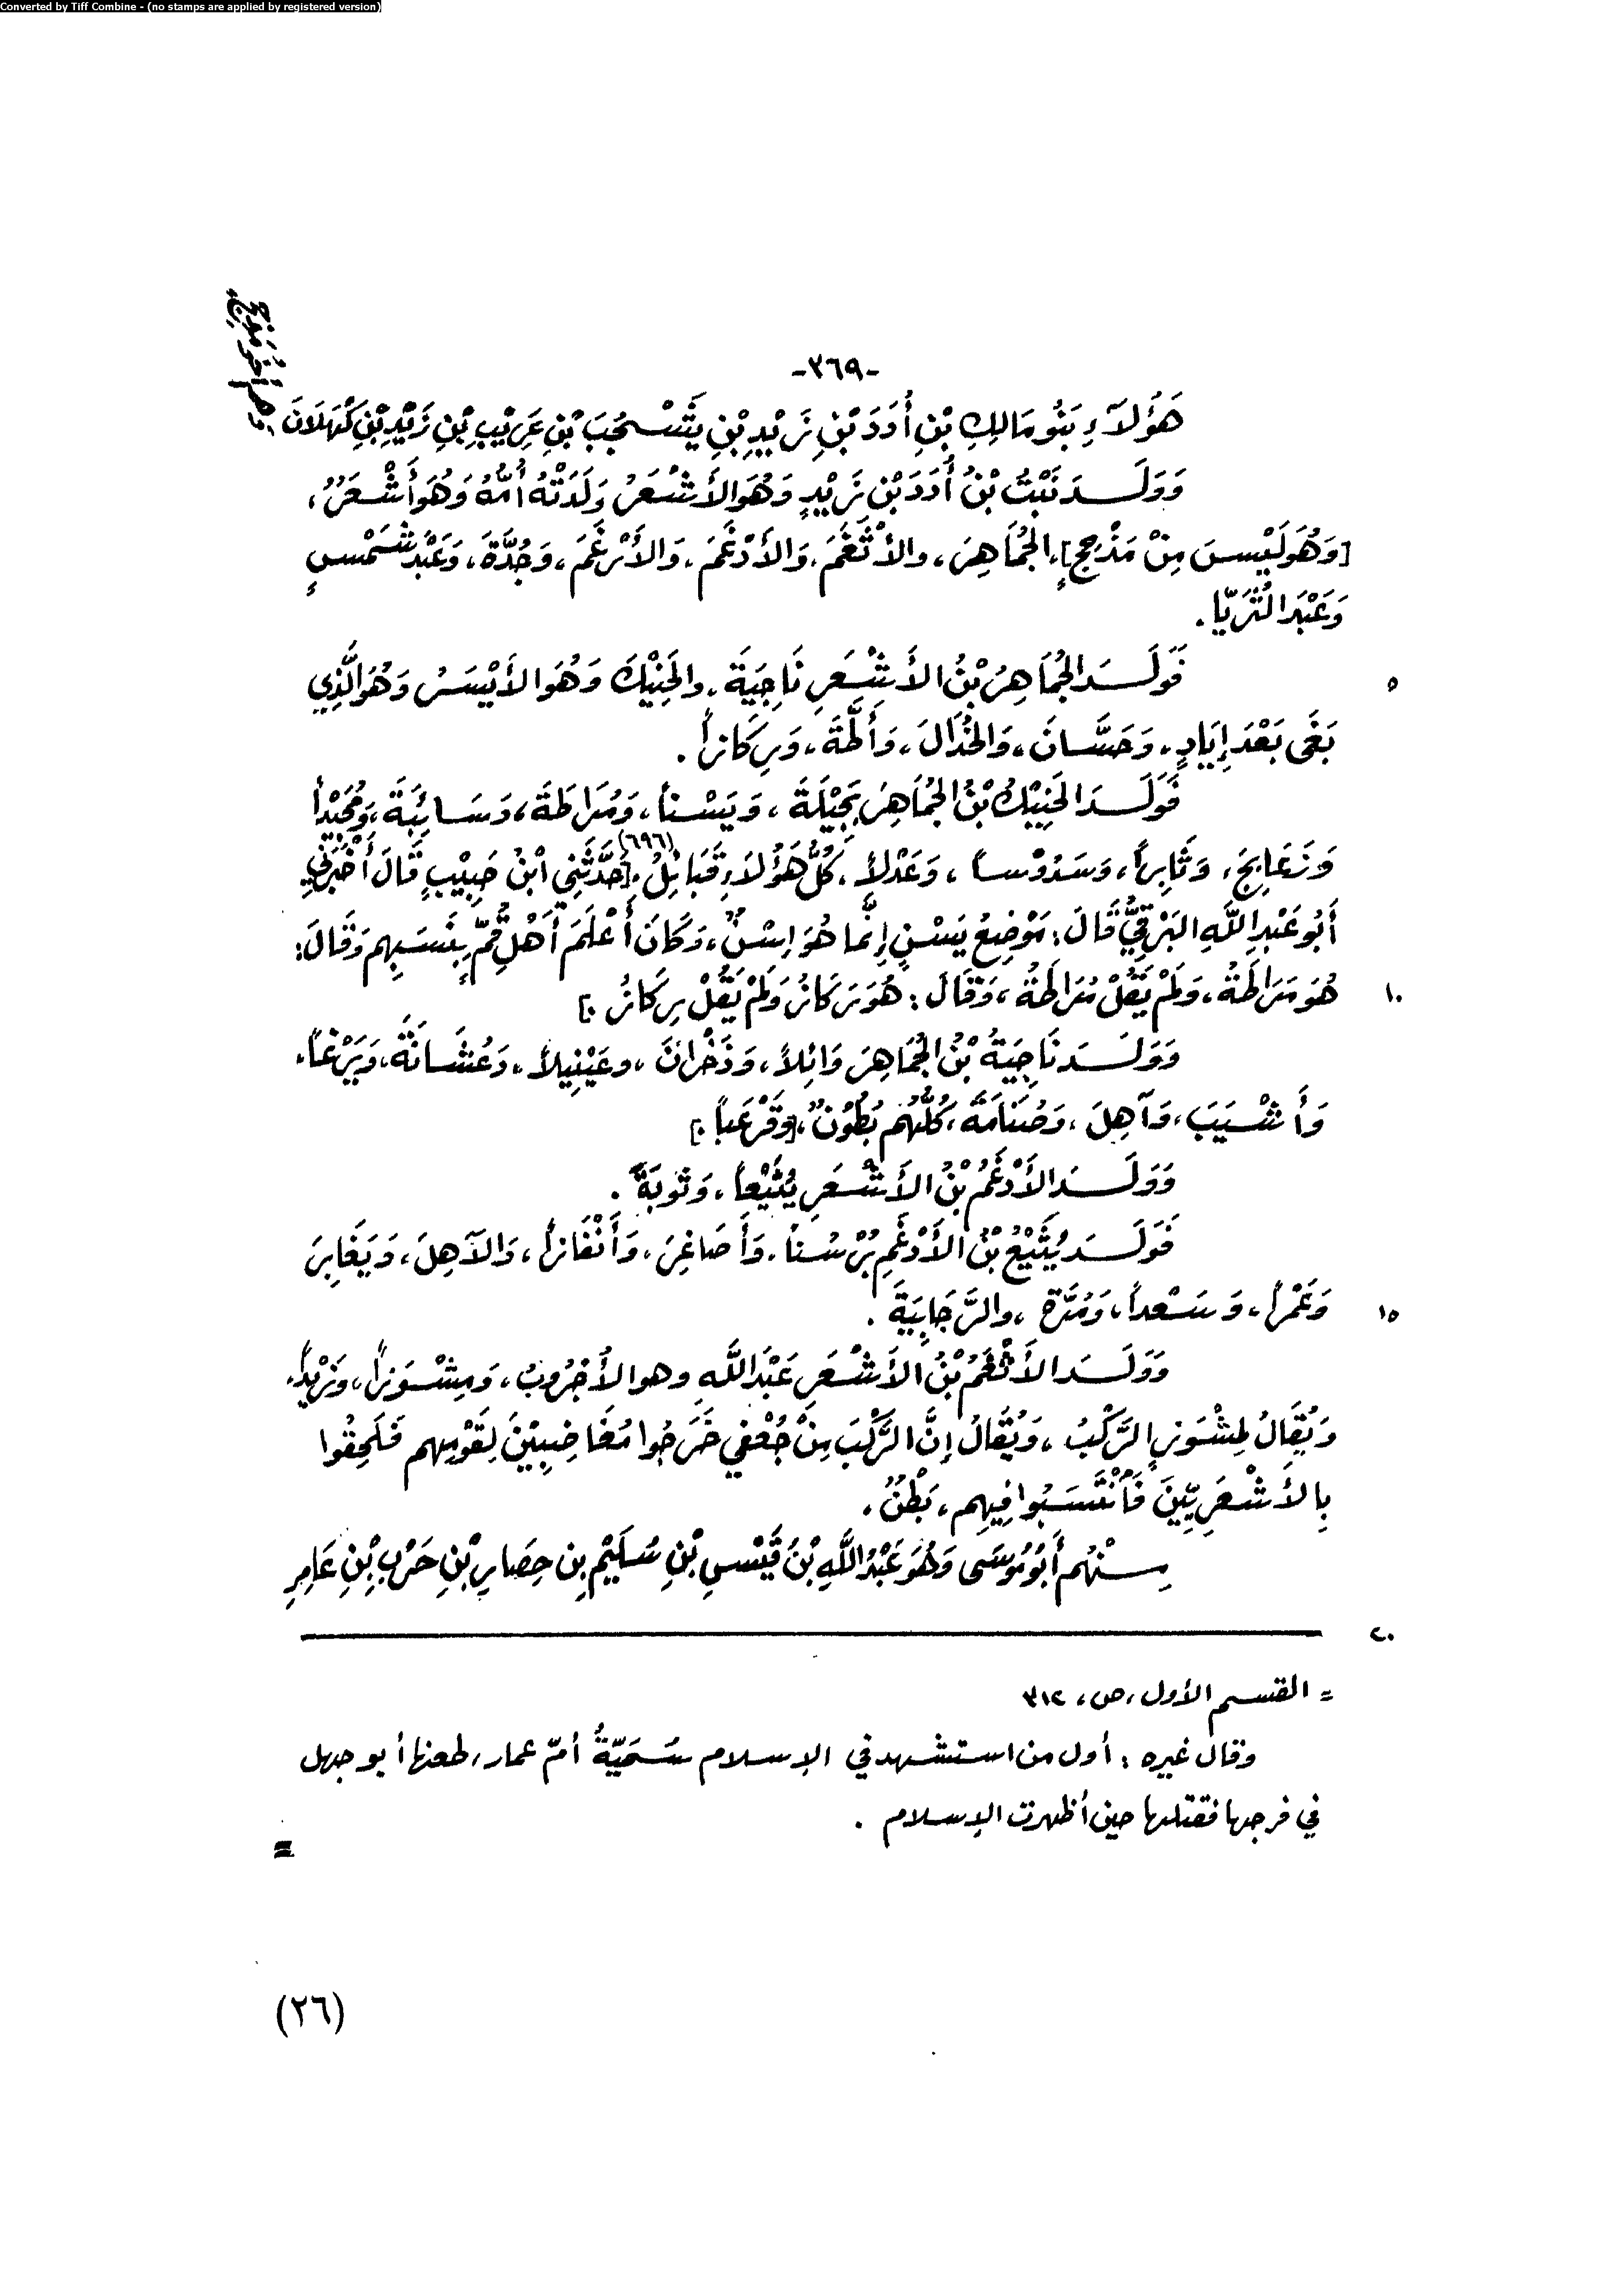 Converted by Tiff Combine - (no stamps are applied by registered version)
-٣٦٩-
هَؤُلَاءِ بَنُو مَالِكِ بْنِ أُدَدَ بْنِ زَيْدِ بْنِ يَشْجُبَ بْنِ عَرِيْبِ بْنِ زَيْدِ بْنِ كَهْلَانَ
وَوَلَدَ نَبْتُ بْنُ أُدَدَ بْنِ زَيْدٍ وَهُوَ الأَشْعَرُ وَلَدَتْهُ أُمُّهُ وَهُوَ أَشْعَرُ،
[وَهُوَ لَيْسَ مِنْ مَذْحِجٍ]، الجُمَاهِرَ، والأَثْغَمَ، وَالأَدْغَمَ، وَالأَرْغَمَ، وَجُدَّةَ، وَعَبْدَ شَمْسٍ
وَعَبْدَ الثُّرَيَّا.
فَوَلَدَ الجُمَاهِرُ بْنُ الأَشْعَرِ نَاجِيَةَ، والحَنِيْكَ وَهُوَ الأَيْسَرُ وَهُوَ الَّذِي
٥
بَغَى بَعْدَ إِيَادٍ، وَحَسَّانَ، وَالخُذَالَ، وَأَلْحَةَ، وَرِكَازاً.
فَوَلَدَ الحَنِيْكُ بْنُ الجُمَاهِرِ بَجِيْلَةَ، وَيَسْناً، وَمُرَاطَةَ، وَسَائِبَةَ، وَمُجِيْداً
وَزَعَابِجَ، وَثَابِراً، وَسَدُوْساً، وَعَدْلاً، كُلُّ هَؤُلَاءِ قَبَائِلُ.(٦٩٦) [حَدَّثَنِي ابْنُ حَبِيْبٍ قَالَ أَخْبَرَنِي
أَبُو عَبْدِ اللَّهِ البَرْقِيُّ قَالَ: مَوْضِعُ يَسْنٍ إِنَّمَا هُوَ إِسْنٌ، وَكَانَ أَعْلَمَ أَهْلِ قُمٍّ بِنَسَبِهِم وَقَالَ:
هُوَ مَرَاطَةُ، وَلَمْ يَقُلْ مُرَاطَةُ، وَقَالَ: هُوَ رَكَازُ وَلَمْ يَقُلْ رِكَازُ.]
١٠
وَوَلَدَ نَاجِيَةُ بْنُ الجُمَاهِرِ وَائِلاً، وَذَخْرَانَ، وعَيْنِيلاً، وَعُشَانَةَ، وَيَرْعَاً،
وَأَشْيَبَ، وَآهِلَ، وَصُنَامَةَ، كُلُّهُم بُطُوْنٌ، [وَقَرْعَباً.]
وَوَلَدَ الأَدْغَمُ بْنُ الأَشْعَرِ يُثَيْعاً، وَثَوبَةَ.
فَوَلَدَ يُثَيْعُ بْنُ الأَدْغَمِ بُرْسُناً، وَأَصَاغِرَ، وَأَنْفَاراً، وَالآهِلَ، وَيَغَابِرَ
وَعَمْراً، وَسَعْداً، وَمُرَّةَ، والرَّجَابِيَةَ.
١٥
وَوَلَدَ الأَثْغَمُ بْنُ الأَشْعَرِ عَبْدَ اللَّهِ وهو الأُجْرُوبُ، وَمِشْوَزاً، وَزَيْداً،
وَيُقَالُ لِمِشْوَزٍ الرَّكْبُ، وَيُقَالُ إِنَّ الرَّكْبَ مِنْ جُعْفِي خَرَجُوا مُغَاضِبِيْنَ لِقَوْمِهِم فَلَحِقُوا
بِالأَشْعَرِيِّينَ فَانْتَسَبُوا فِيهِم، بَطْنٌ،
مِنْهُم أَبُو مُوسَى وَهُوَ عَبْدُ اللَّهِ بْنُ قَيْسِ بْنِ سُلَيْمِ بِنِ حِصَارِ بْنِ حَرْبِ بْنِ عَامِرِ
٢٠
= القسم الأول، ص، ٣١٢
وقال غيره: أول من استشهد في الإسلام سُمَيَّةُ أمّ عمار، طعنها أبو جهل
في فرجها فقتلها حين أظهرت الإسلام.
=
(٢٦)